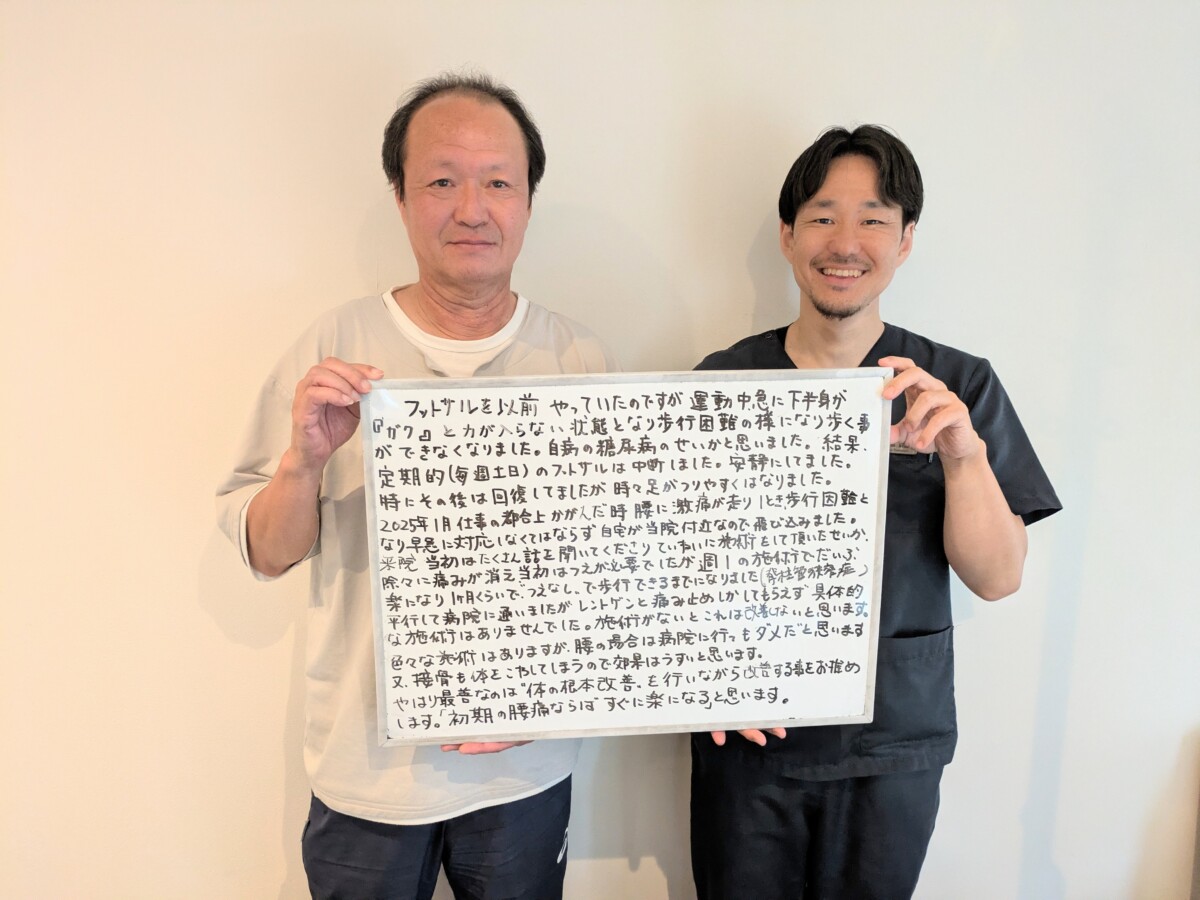 フットサルを以前 やっていたのですが 運動中急に下半身が
『ガク』と力が入らない状態となり歩行困難の様になり歩く事
ができなくなりました。自病の糖尿病のせいかと思いました。結果、
定期的(毎週土日)のフットサルは中断しました。安静にしてました。
特にその後は回復してましたが 時々足がつりやすくはなりました。
2025年1月仕事の都合上かがんだ時 腰に激痛が走り 1とき歩行困難と
なり早急に対応しなくてはならず 自宅が当院付近なので飛び込みました。
来院 当初はたくさん話を聞いてくださり ていねいに施術をして頂いたせいか、
除々に痛みが消え当初はつえが必要でしたが週1の施術でだいぶ
楽になり 1ヶ月くらいで、つえなしで歩行できるまでになりました(脊柱管
平行して病院に通いましたがレントゲンと痛み止めしかしてもらえず 具体的
な施術はありませんでした。施術がないとこれは改善しないと思います。
色々な施術はありますが、腰の場合は病院に行ってもダメだと思います
又、接骨も体をこやしてしまうので効果はうすいと思います。
やはり最善なのは"体の根本改善"を行いながら改善する事をお推め
します。「初期の腰痛ならば すぐに楽になる」と思います。